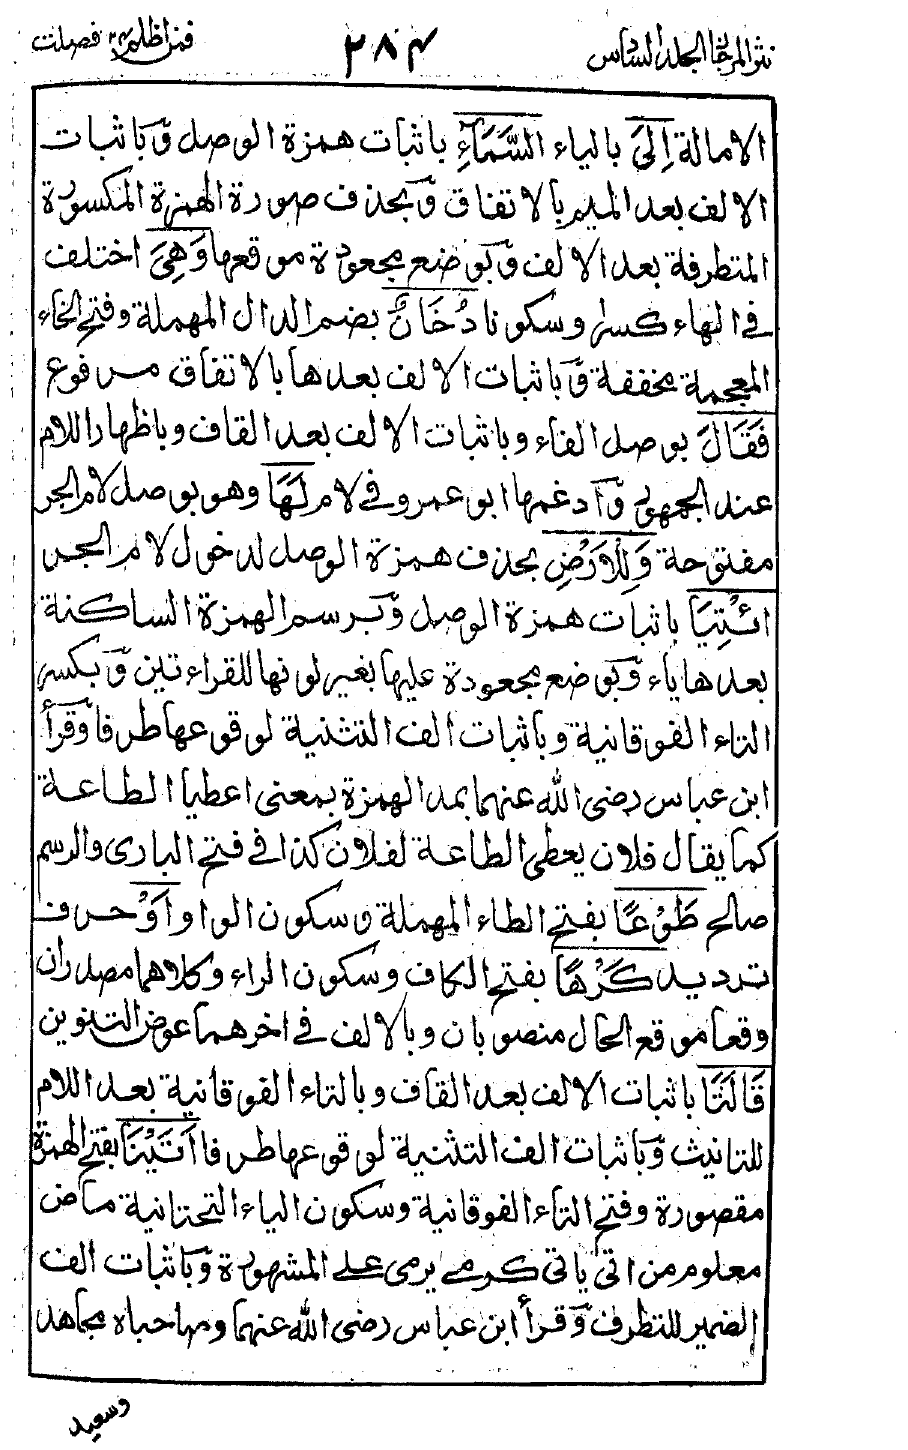 نثر المرجان الجلد السادس
٣٨٤
فمن اظلم ٢٤ فصلت
الامالة اِلَى بالياء السَّمَآءِ باثبات همزة الوصل وَباثبات
الالف بعد الميم بالاتفاق وَبحذف صورة الهمزة المكسورة
المتطرفة بعد الالف وَبوضع مجعودة موقعها وَهِيَ اختلف
فى الهاء كسرا وسكونا دُخَانٌ بضم الدال المهملة وفتح الخاء
المعجمة مخففة وَباثبات الالف بعدها بالاتفاق مرفوع
فَقَالَ بوصل الفاء وباثبات الالف بعد القاف وباظهار اللام
عند الجمهور وَادغمها ابو عمرو فى لام لَهَا وهو بوصل لام الجر
مفتوحة وَلِلْاَرْضِ بحذف همزة الوصل لدخول لام الجر
ائْتِيَا باثبات همزة الوصل وَبرسم الهمزة الساكنة
بعدها ياء وَبوضع مجعودة عليها بغير لونها للقراءتين وَبكسر
التاء الفوقانية وباثبات الف التثنية لوقوعها طرفا وَقرأ
ابن عباس رضى الله عنهما بمد الهمزة بمعنى اعطيا الطاعة
كما يقال فلان يعطى الطاعة لفلان كذا فى فتح البارى والرسم
صالح طَوْعًا بفتح الطاء المهملة وسكون الواو اَوْ حرف
ترديد كَرْهًا بفتح الكاف وسكون الراء وكلاهما مصدران
وقعا موقع الحال منصوبان وبالالف فى اخرهما عوض التنوين
قَالَتَا باثبات الالف بعد القاف وبالتاء الفوقانية بعد اللام
للتانيث وَباثبات الف التثنية لوقوعها طرفا اَتَيْنَا بفتح الهمزة
مقصورة وفتح التاء الفوقانية وسكون الياء التحتانية ماض
معلوم من اتى ياتى كرمى يرمى على المشهورة وَباثبات الف
الضمير للتطرف وَقرأ ابن عباس رضى الله عنهما وصاحباه مجاهد
وسعيد